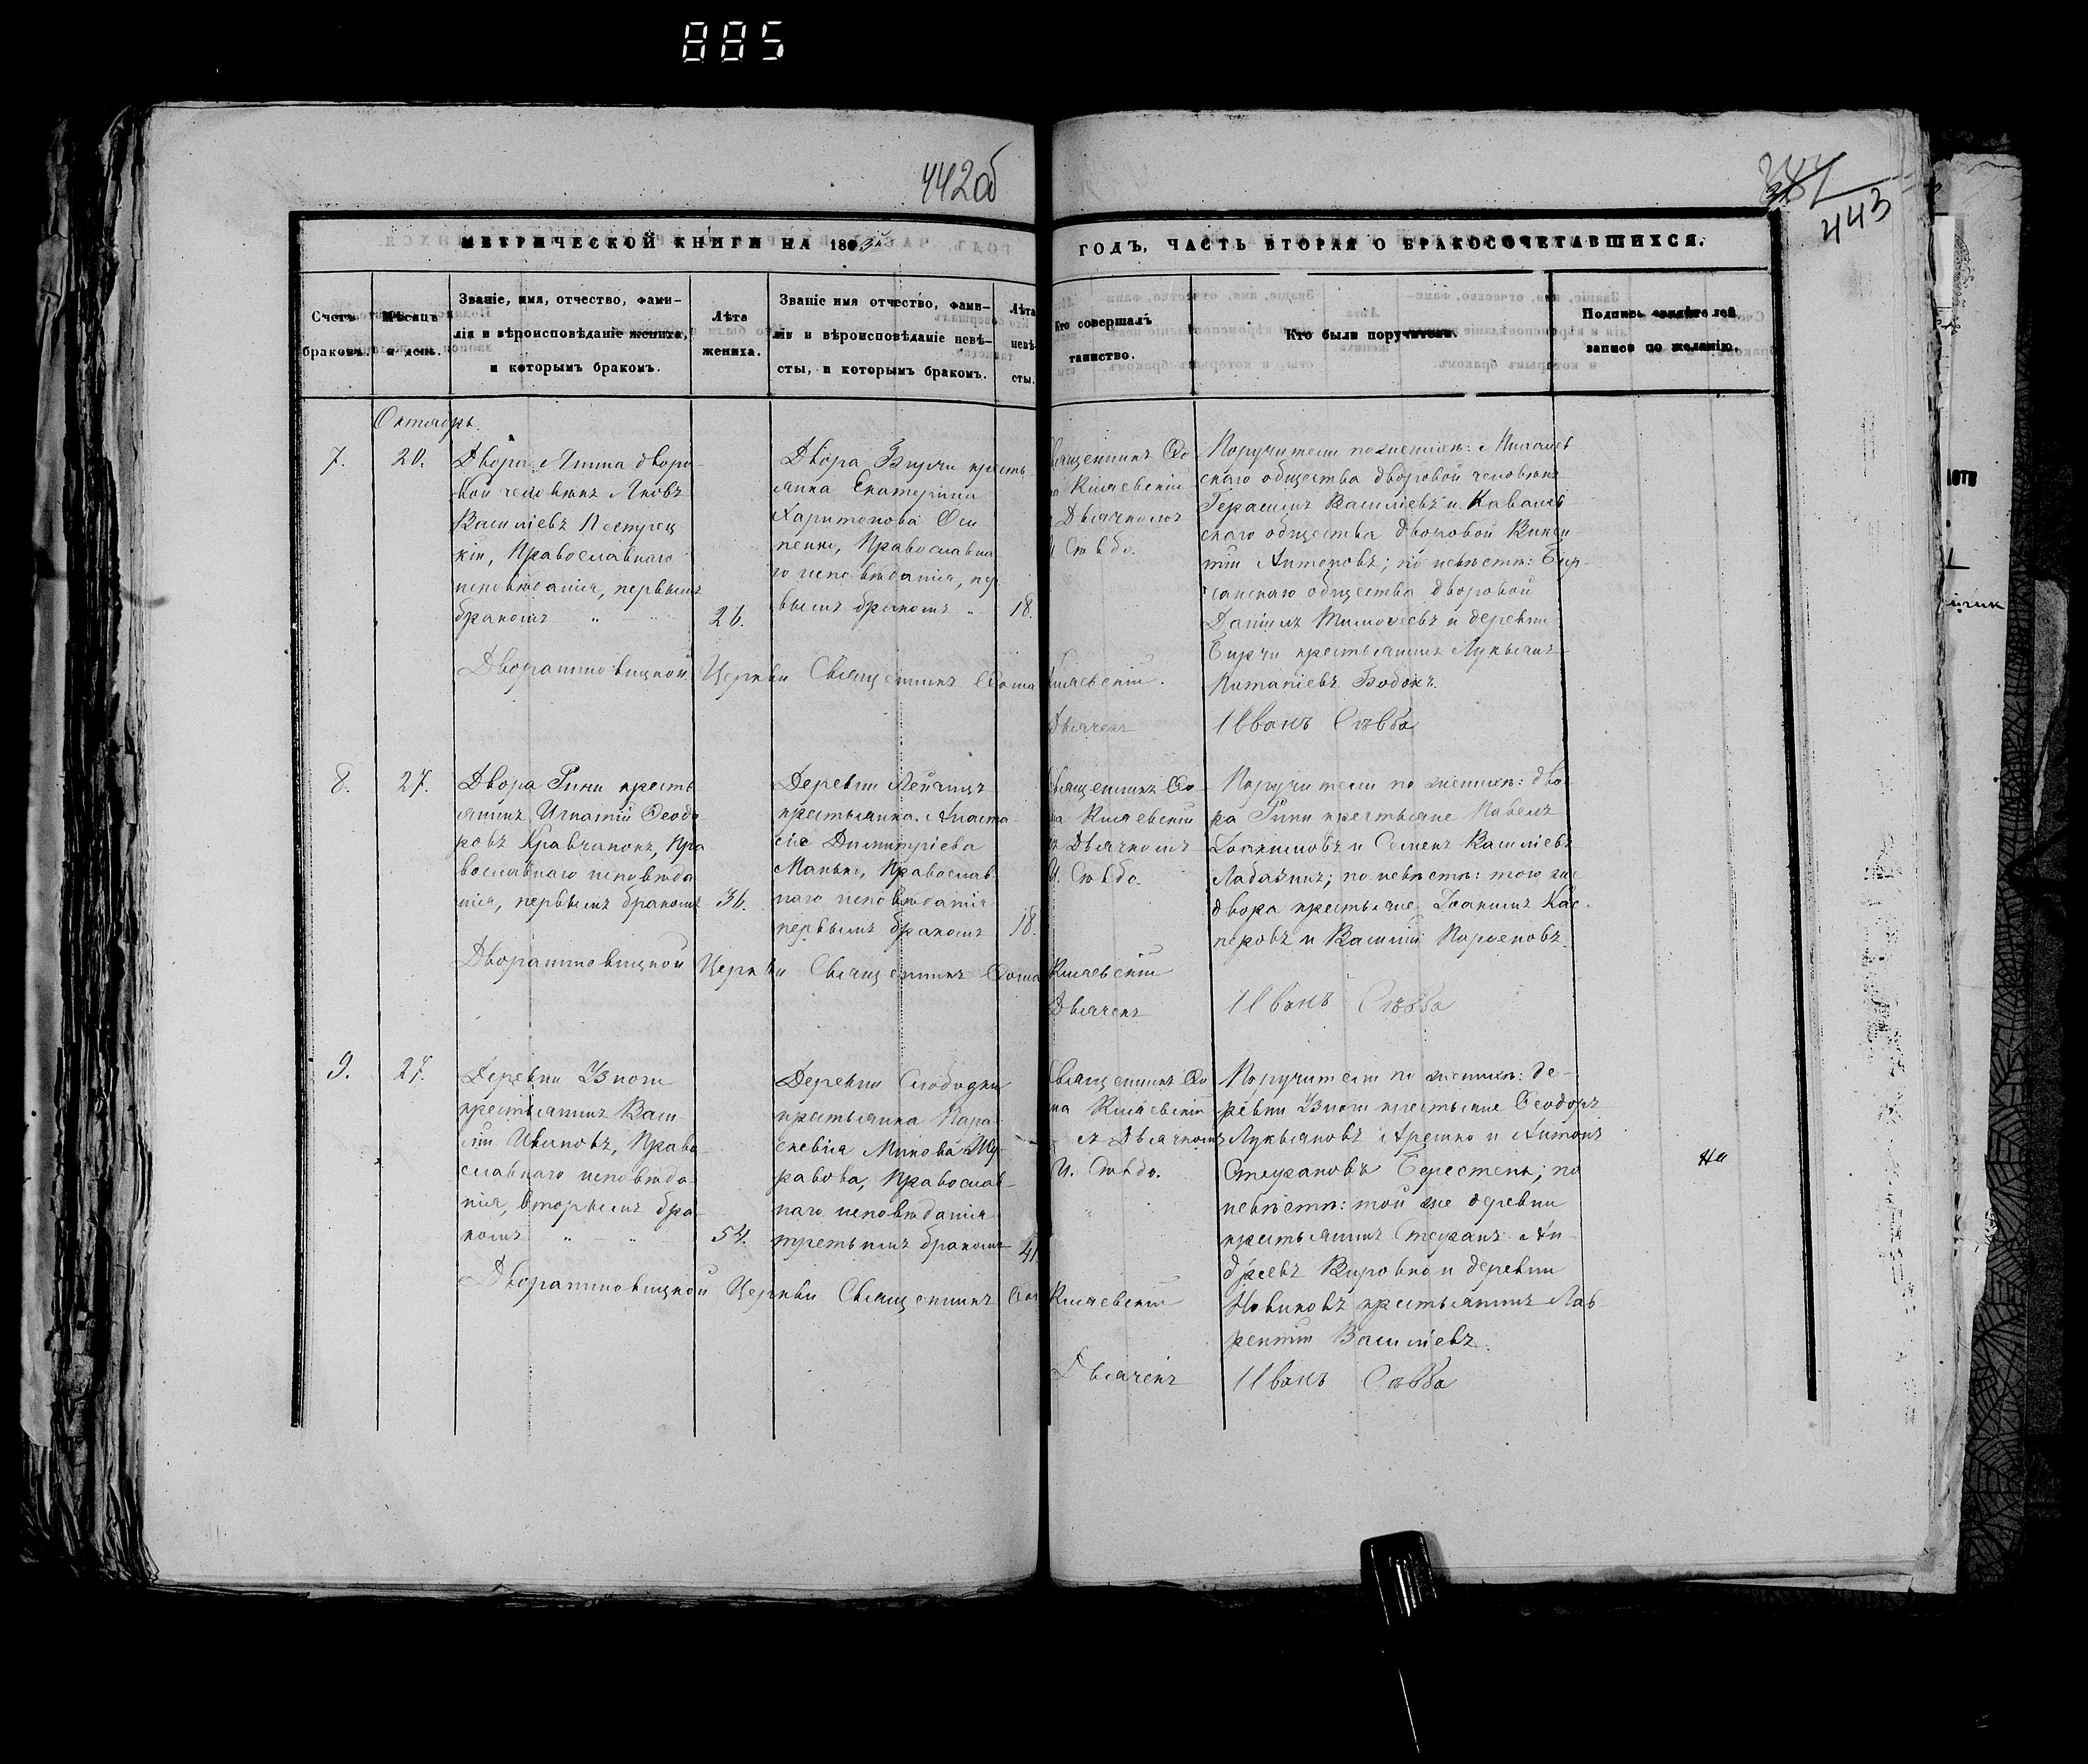 885
442об
443
МЕТРИЧЕСКОЙ КНИГИ НА 1863й
ГОДЪ, ЧАСТЬ ВТОРАЯ О БРАКОСОЧЕТАВШИХСЯ.
Счетъ
браковъ.
Мѣсяцъ
и день.
Званіе, имя, отчество, фами-
лія и вѣроисповѣданіе жениха,
и которымъ бракомъ.
Лѣта
жениха.
Званіе имя отчество, фами-
лія и вѣроисповѣданіе невѣ-
сты, и которымъ бракомъ.
Лѣта
невѣ
сты.
Кто совершалъ
таинство.
Кто были поручители.
Подпись свидѣтелей
записи по желанію.
Октябрь.
7.
20.
Двора дворо-
вой человѣкъ Яковъ
Васильевъ Пестрец
кій, Православнаго
исповѣданія, первымъ
бракомъ
26.
Двора Бирчи кресть
янка Екатерина
Харитонова Оси
пенко, Православна
го исповѣданія, пер
вымъ бракомъ
18.
Священникъ Ѳо
ма Кижевскій
Дьячкомъ
И. Сѣвбо.
Поручители по женихѣ:
скаго общества дворовой человѣкъ
Герасимъ Васильевъ и
скаго общества дворовой Викен
тій Антоновъ; по невѣстѣ: Бир-
чанскаго общества дворовой
Даніилъ Тимоѳеевъ и деревни
Бирчи крестьянинъ Лукьянъ
Бодокъ.
Церкви Священникъ Ѳома
Дьячекъ Иванъ Сѣвба
8.
27.
Двора Гини кресть
янинъ Игнатій Ѳеодо
ровъ Кравчанокъ, Пра
вославнаго исповѣда
нія, первымъ бракомъ
36.
Деревни
крестьянка Анаста
сія Димитріева
Манько, Православ
наго исповѣданія
первымъ бракомъ
18.
Священникъ Ѳо
ма Кижевскій
съ Дьячкомъ
И. Сѣвбо.
Поручители по женихѣ: дво
ра Гини крестьяне Павелъ
Іоакимовъ и Семенъ Васильевъ
по невѣстѣ: того же
двора крестьяне Іоакимъ Кас
перовъ и Василій Парѳеновъ.
Церкви Священникъ Ѳома Кижевскій
Дьячекъ Иванъ Сѣвба
9.
27.
Деревни Узноги
крестьянинъ Васи
лій Ивановъ, Право
славнаго исповѣда
нія, вторымъ бра
комъ
54.
Деревни Слободки
крестьянка Пара
скевія Минова
Православ-
наго исповѣданія
третьимъ бракомъ
41.
Священникъ Ѳо
ма Кижевскій
съ Дьячкомъ
И. Сѣвбо.
Поручители по женихѣ: де-
ревни Узноги крестьяне Ѳеодоръ
Лукьяновъ Арешко и Антонъ
Стефановъ Берестень; по
невѣстѣ: той же деревни
крестьянинъ Стефанъ Ан-
дреевъ и деревни
Новиковъ крестьянинъ Лав-
рентій Васильевъ.
Церкви Священникъ Кижевскій
Дьячекъ Иванъ Сѣвба